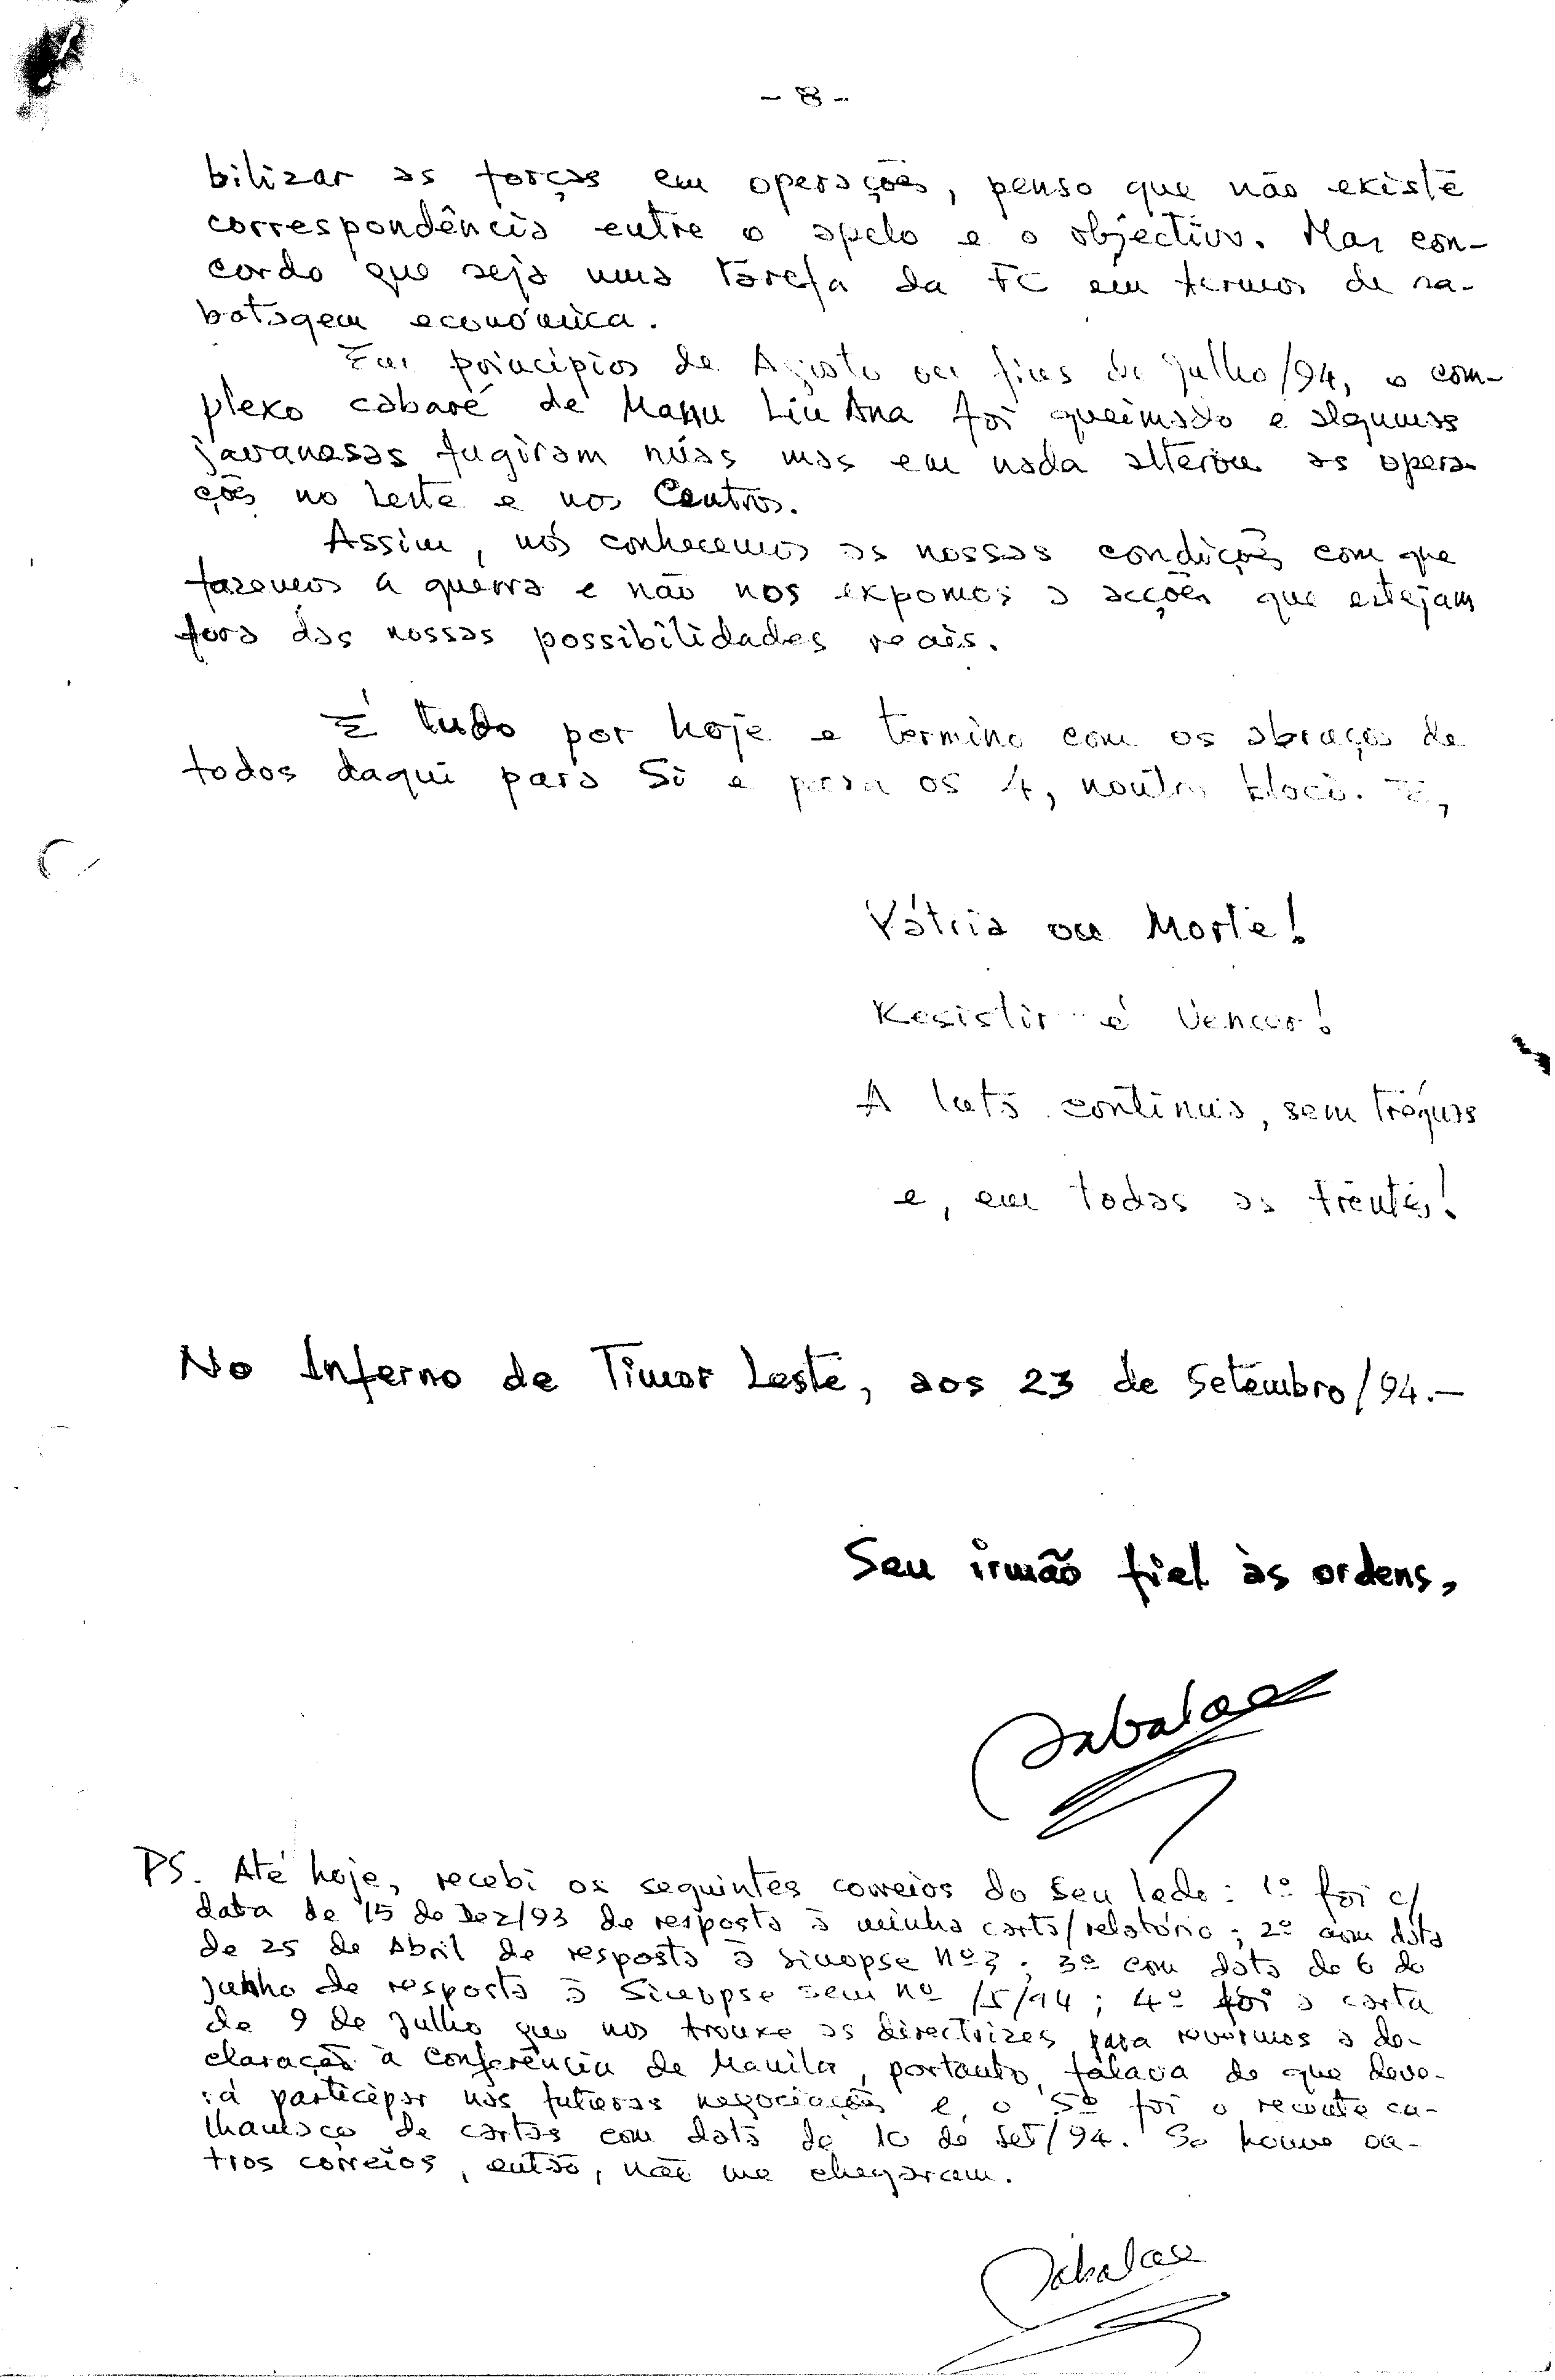 - 8 -
bilizar as forças em operações, penso que não existe
correspondência entre o apelo e o objectivo. Mas con-
cordo que seja uma tarefa da FC em termos de sa-
botagem económica.
Em princípios de Agosto ou fins de Julho/94, o com-
plexo cabaré de Manu Liu Ana foi queimado e algumas
javanesas fugiram núas mas em nada alterou as opera-
ções no Leste e nos Centros.
Assim, nós conhecemos as nossas condições com que
fazemos a guerra e não nos expomos a acções que estejam
fora das nossas possibilidades reais.
É tudo por hoje e termino com os abraços de
todos daqui para Si e para os 4, noutro bloco.
Pátria ou Morte!
Resistir é Vencer!
A luta continua, sem tréguas
e, em todas as frentes!
No Inferno de Timor Leste, aos 23 de Setembro/94.-
Seu irmão fiel às ordens,
Sabalae
PS. Até hoje, recebi os seguintes correios do Seu lado: 1º foi c/
data de 15 de Dez/93 de resposta à minha carta/relatório; 2º com data
de 25 de Abril de resposta à Sinopse nº 3; 3º com data de 6 de
Junho de resposta à Sinopse sem nº /5/94; 4º foi a carta
de 9 de Julho que nos trouxe as directrizes para revermos a de-
claração à Conferência de Manila, portanto, falava de que deve-
rá participar nas futuras negociações e, o 5º foi o recente ca-
lhamaço de cartas com data de 10 de Set/94. Se houve ou-
tros correios, então, não me chegaram.
Sabalae